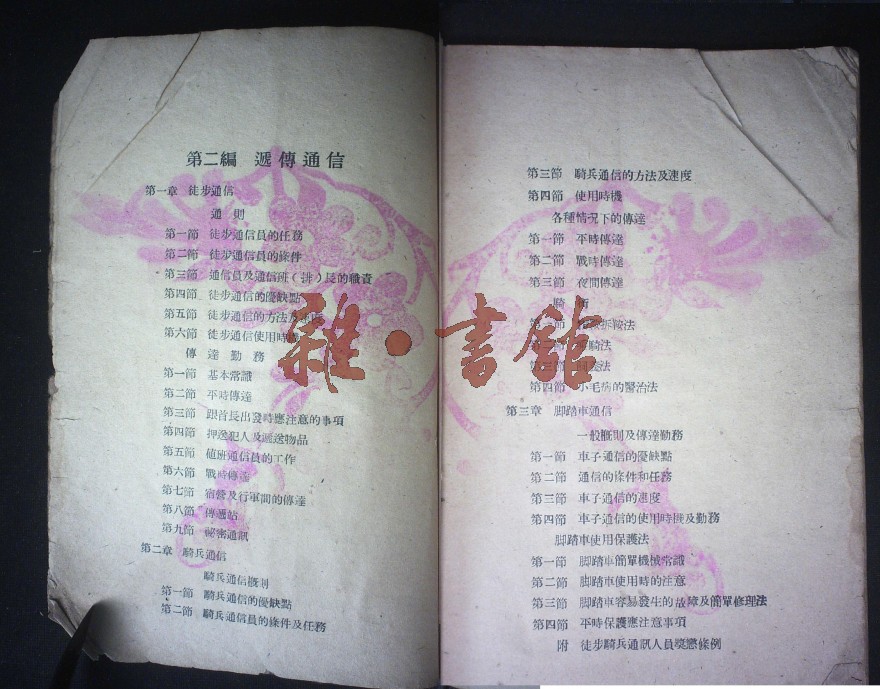 第二編 遞傳通信
第一章 徒步通信
通則
第一節 徒步通信員的任務
第二節 徒步通信員的條件
第三節 通信員及通信班(排)長的職責
第四節 徒步通信的優缺點
第五節 徒步通信的方法及
第六節 徒步通信使用時
傳達勤務
第一節 基本常識
第二節 平時傳達
第三節 跟首長出發時應注意的事項
第四節 押送犯人及遞送物品
第五節 値班通信員的工作
第六節 戰時傳達
第七節 宿營及行軍間的傳達
第八節 傳遞站
第九節 祕密通訊
第二章 騎兵通信
騎兵通信概則
第一節 騎兵通信的優缺點
第二節 騎兵通信員的條件及任務
第三節 騎兵通信的方法及速度
第四節 使用時機
各種情况下的傳達
第一節 平時傳達
第二節 戰時傳達
第三節 夜間傳達
騎
節 拆鞍法
騎法
第四節 小毛病的醫治法
第三章 脚踏車通信
一般概則及傳達勤務
第一節 車子通信的優缺點
第二節 通信的條件和任務
第三節 車子通信的速度
第四節 車子通信的使用時機及勤務
脚踏車使用保護法
第一節 脚踏車簡單機械常識
第二節 脚踏車使用時的注意
第三節 脚踏車容易發生的故障及簡單修理法
第四節 平時保護應注意事項
附 徒步騎兵通訊人員獎懲條例
雜·書館